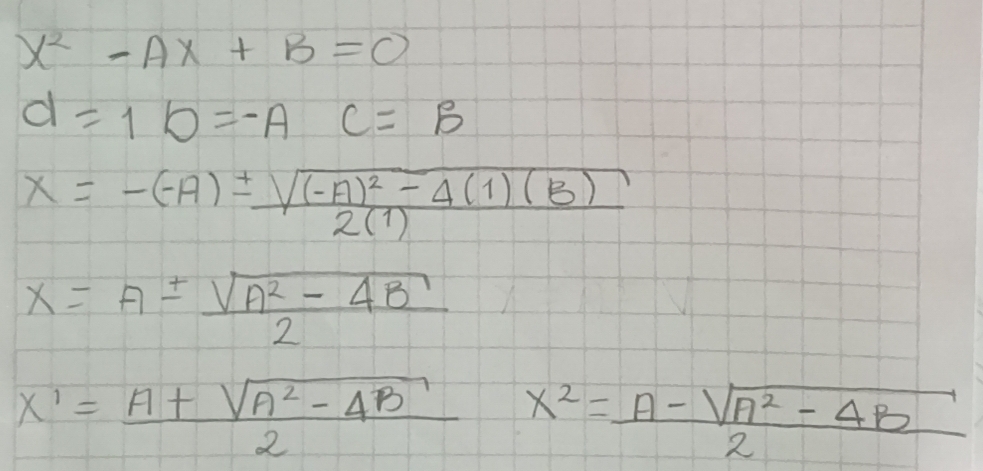 x² - Ax + B = 0
a = 1 b = -A c = B
x = -(-A) ± √(-A)² - 4(1)(B) / 2(1)
x = A ± √A² - 4B / 2
x¹ = A + √A² - 4B / 2 x² = A - √A² - 4B / 2